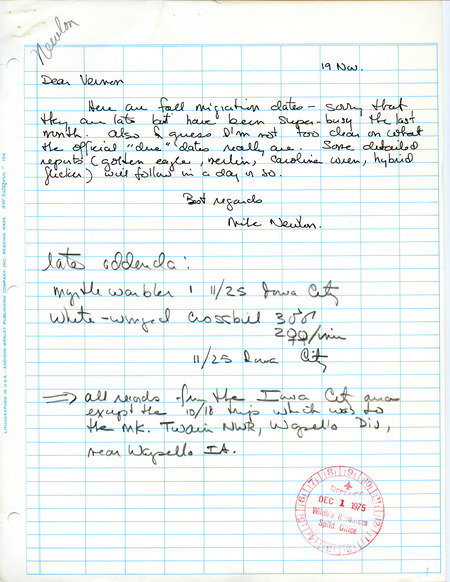 Newton
19 Nov.
Dear Vernon
Here are fall migration dates – sorry that
they are late but have been super-busy the last
month. Also I guess I'm not too clear on what
the official "due" dates really are. Some detailed
reports (golden eagle, merlin, caroline wren, hybrid
flicker) will follow in a day or so.
Best regards
Mike Newton.
late addenda:
myrtle warbler 1 11/25 Iowa City
White-winged crossbill 3♂♂
2♀♀/imm
11/25 Iowa City
⇒ all records from the Iowa City area
except the 10/18 trip which was to
the Mk. Twain NWR, Wapello Div,
near Wapello IA.
DEC 1 1975
Wildlife Resources
Spfld Office
LITHOGRAPHED IN U.S.A. - ADDISON-WESLEY PUBLISHING COMPANY, INC. READING, MASS.